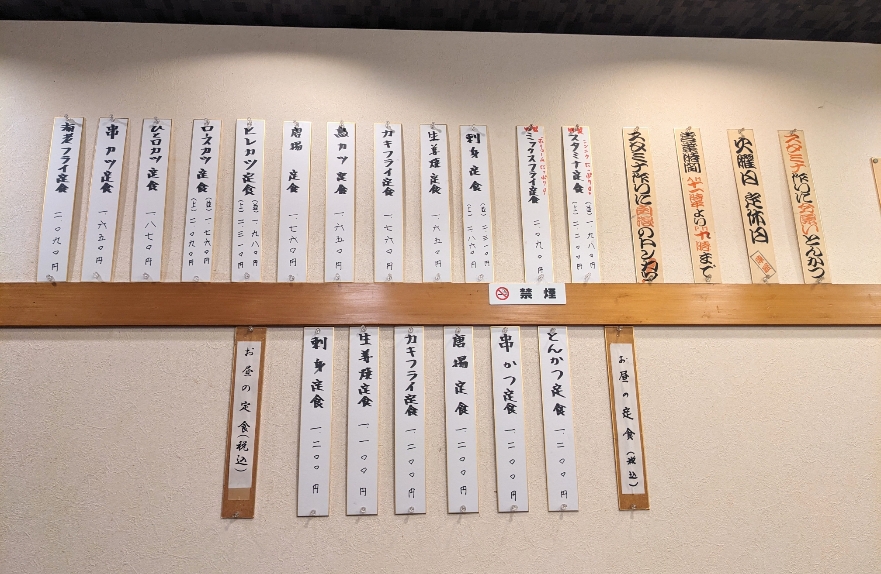 スタミナ作りに分厚いとんかつ
火曜日 定休日
営業時間 十一時より 九時まで
スタミナ作りに のトンカツ
スタミナ定食 一、九八〇円
ミックスフライ定食 二、〇九〇円
刺身定食 (並)二、三一〇円
(上)二、八六〇円
生姜焼定食 一、六五〇円
カキフライ定食 一、七六〇円
魚カツ定食 一、六五〇円
唐揚 定食 一、七六〇円
ヒレカツ定食 (並)一、九八〇円
(上)二、三一〇円
ロースカツ定食 (並)一、七六〇円
(上)二、〇九〇円
ひと口カツ定食 一、八七〇円
串カツ定食 一、六五〇円
海老フライ定食 二、〇九〇円
禁煙
お昼の定食(税込)
とんかつ定食 一、二〇〇円
串かつ定食 一、二〇〇円
唐揚定食 一、二〇〇円
カキフライ定食 一、二〇〇円
生姜焼定食 一、一〇〇円
刺身定食 一、二〇〇円
お昼の定食(税込)